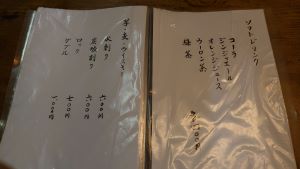 ソフトドリンク
コーラ
ジンジャエール
オレンジジュース
ウーロン茶
緑茶
各三〇〇円
芋・麦
水割り 六〇〇円
炭酸割り 六〇〇円
ロック 七〇〇円
ダブル 一、〇〇〇円